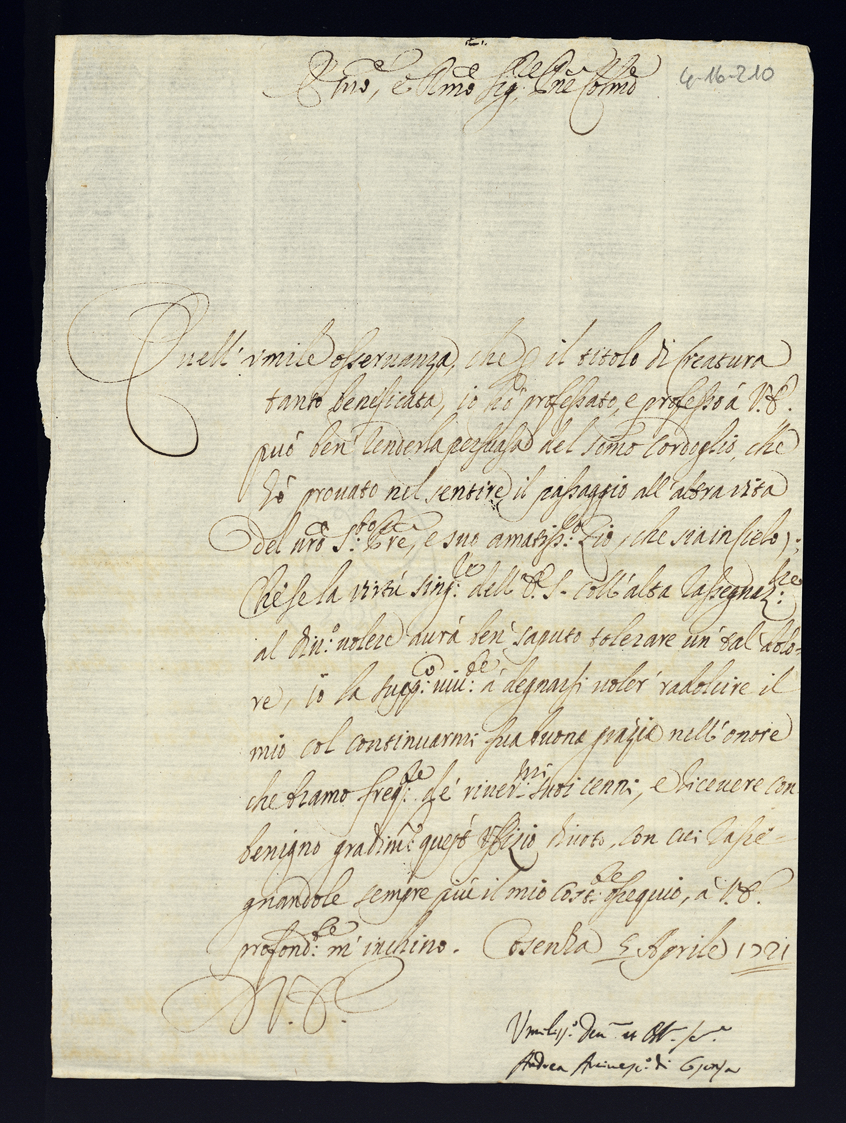 4-16-210
Emo, e Rmo Sig.re Pne Colmo
Quell' vmile osseruanza, che p il titolo di Creatura
tanto beneficata, io hò professato, e professo à V.E.
può ben' renderla persuasa del somo cordoglio, che
hò prouato nel sentire il passaggio all'altra vita
del nro S.to Pre, e suo amatiss.o Zio, che sia in Cielo;
Che se la virtù sing.re dell'E.S. coll'alta rassegnaz.ne
al diu.o uolere aurà ben' saputo tolerare un' tal dolo-
re, io la supp.co viu.te à degnarsi uoler' radolcire il
mio col continuarmi sua buona grazia nell'onore
che bramo freq.te de' riuer.mi suoi cenni, e riceuere con
benigno gradim.to questo Vffizio diuoto, con cui rasse-
gnandole sempre più il mio cost.te ossequio, à V.E.
profond.te m'inchino. Cosenza 5 Aprile 1721
D. V. E.
Vmiliss.o Deu.mo et Obl.mo ser.re
Andrea Arciuesc.o di Cosenza